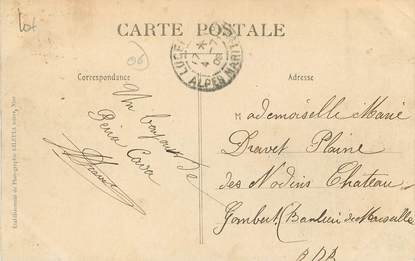 Lot
CARTE POSTALE
06
LUCE
ALPES MARIT
Correspondance
Adresse
Un bonjour de
Peïra Cava
Mademoiselle Marie
Dravet Plaine
des Nodins Chateau
Gombert (Banlieue de Marseille
B.D.R
Etablissements de Photographie GILETTA frères, Nice